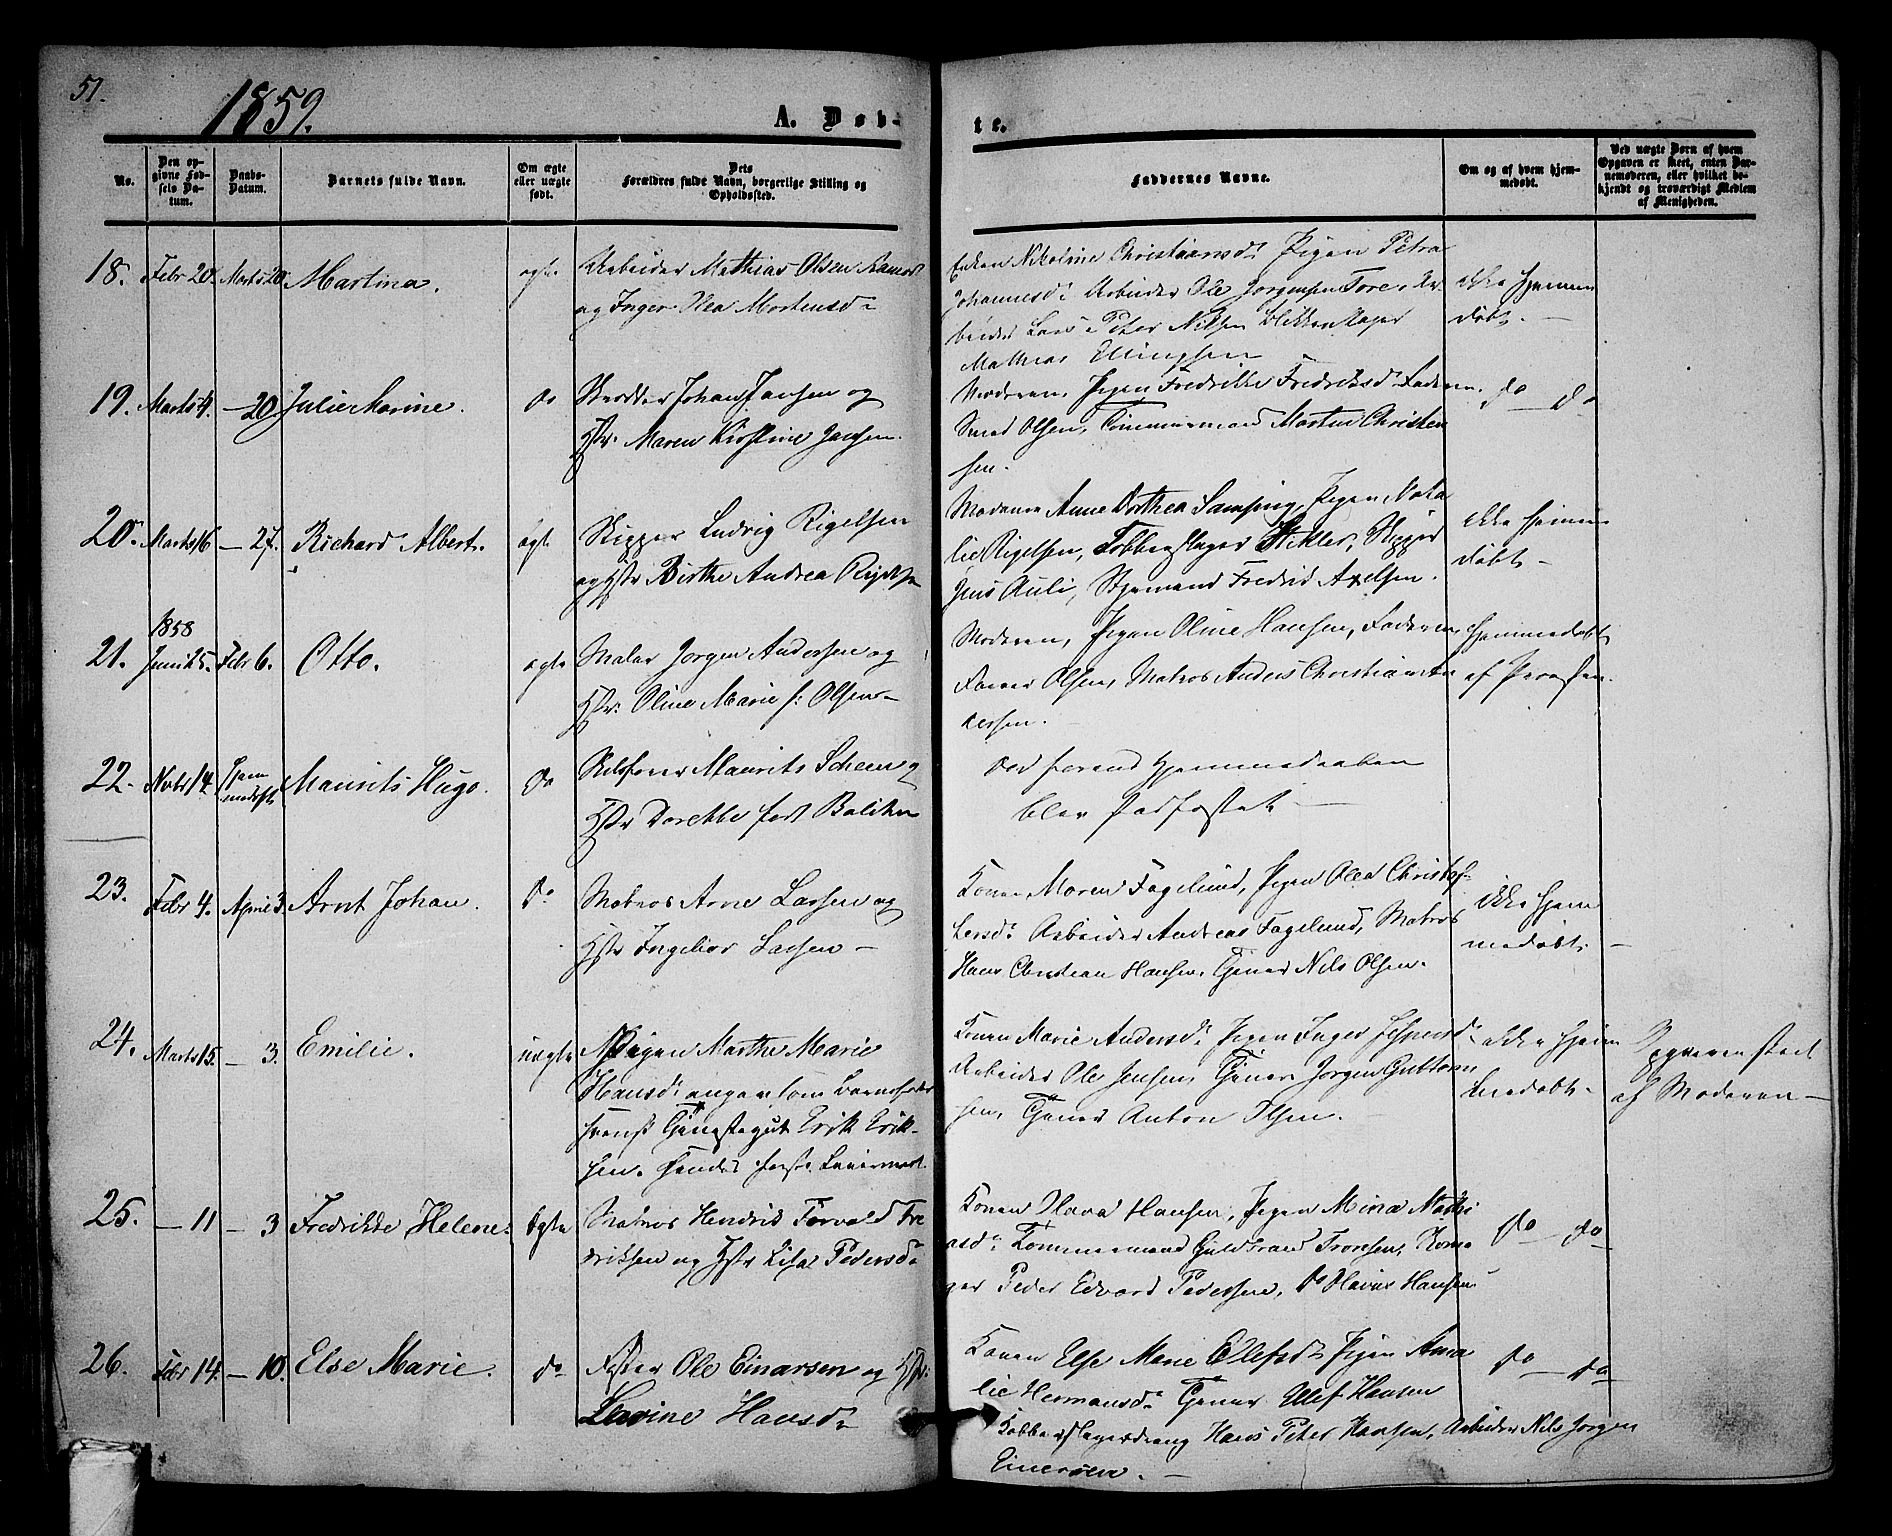 51.
1859.
A. Døb-
te.
No.
Den op-
givne Fød-
sels Da-
tum.
Daabs-
Datum.
Barnets fulde Navn.
Om ægte
eller uægte
født.
Dets
Forældres fulde Navn, borgerlige Stilling og
Opholdssted.
Faddernes Navne.
Om og af hvem hjem-
medøbt.
Ved uægte Børn af hvem
Opgaven er skeet, enten Bar-
nemoderen, eller hvilket be-
kjendt og troværdigt Medlem
af Menigheden.
18. Febr 20. Marts 20 Martina. ægte Arbeider Mathias Olsen
og Inger Olea Mortensd.
Enken Nikoline Christiansd. Pigen Petra
Johannesd. Arbeider Ole Jørgensen Tore, Ar-
beider Lars Peter Nilsen Blikkenslager
Mathias Ellingsen
ikke hjemme
døbt. —
19. Marts 4. — 20 Julie Marine. do Skredder Johan Jansen og
Hstr. Maren Kirstine Jansen.
Moderen, Pigen Fredrikke Fredriksd. Faderen.
Smed Olsen, Tømmermand Martin Christen
sen.
do — do
20. Marts 16 — 27. Richard Albert. ægte Skipper Ludvig Rigelsen
og Hstr Birthe Andrea Rigelsen
Moderen Anne Dorthea Samsing, Pigen Nata
lie Rigelsen, Kobberslager Stikler, Skipper
Jens Auli, Styrmand Fredrik Axelsen.
ikke hjemme
døbt —
1858
21. Juni 25. Febr 6. Otto. ægte Maler Jørgen Andersen og
Hstr. Oline Marie f: Olsen —
Moderen, Pigen Oline Hansen, Faderen
Farver Olsen, Matros Anders Christian An
dersen.
hjemmedøbt
af Præsten.
22. Novbr 14. hjem
medøbt Maurits Hugo. do Maurits Scheen og
Hstr Dorethe født Balchen
Ved hjemmedaaben
blev stadfæstet —
23. Febr 4. April 3. Arnt Johan. do Matros Arne Larsen og
Hstr Ingebor Larsen —
Konen Maren Fagelund, Pigen Olea Christof-
fersd. Arbeider Andreas Fagelund, Matros
Hans Christian Hansen, Tjener Nils Olsen.
ikke hjem
medøbt. —
24. Marts 15. — 3. Emilie. uægte Pigen Marthe Marie
Hansd. angav som Barnefader
svensk Tjenestegut Erik Erik-
sen. Hendes første Leiermaal.
Konen Marie Andersd. Pigen Inger Jespersd.
Arbeider Ole Jensen, Tjener Jørgen Guttorm
sen, Tjener Anton Olsen.
ikke hjem
medøbt.
Opgaven skeet
af Moderen —
25. — 11 — 3 Fredrikke Helene. ægte Matros Hendrik Torvald Fre
driksen og Hstr Lisa Pedersd.
Konen Olava Hansen, Pigen Mina Mathi
asd. Tømmermand Guldbrand Tronsen,
ger Peder Edvard Pedersen, do Olavus Hansen
do — do
26. Febr 14. — 10. Else Marie. do Ole Einarsen og Hstr.
Lavine Hansd.
Konen Else Marie Ellefsd. Pigen Ama
lie Hermansd. Tjener Ellef Hansen
Kobberslagerdreng Hans Peter Hansen, Arbeider Nils Jørgen
Einersen. —
do — do